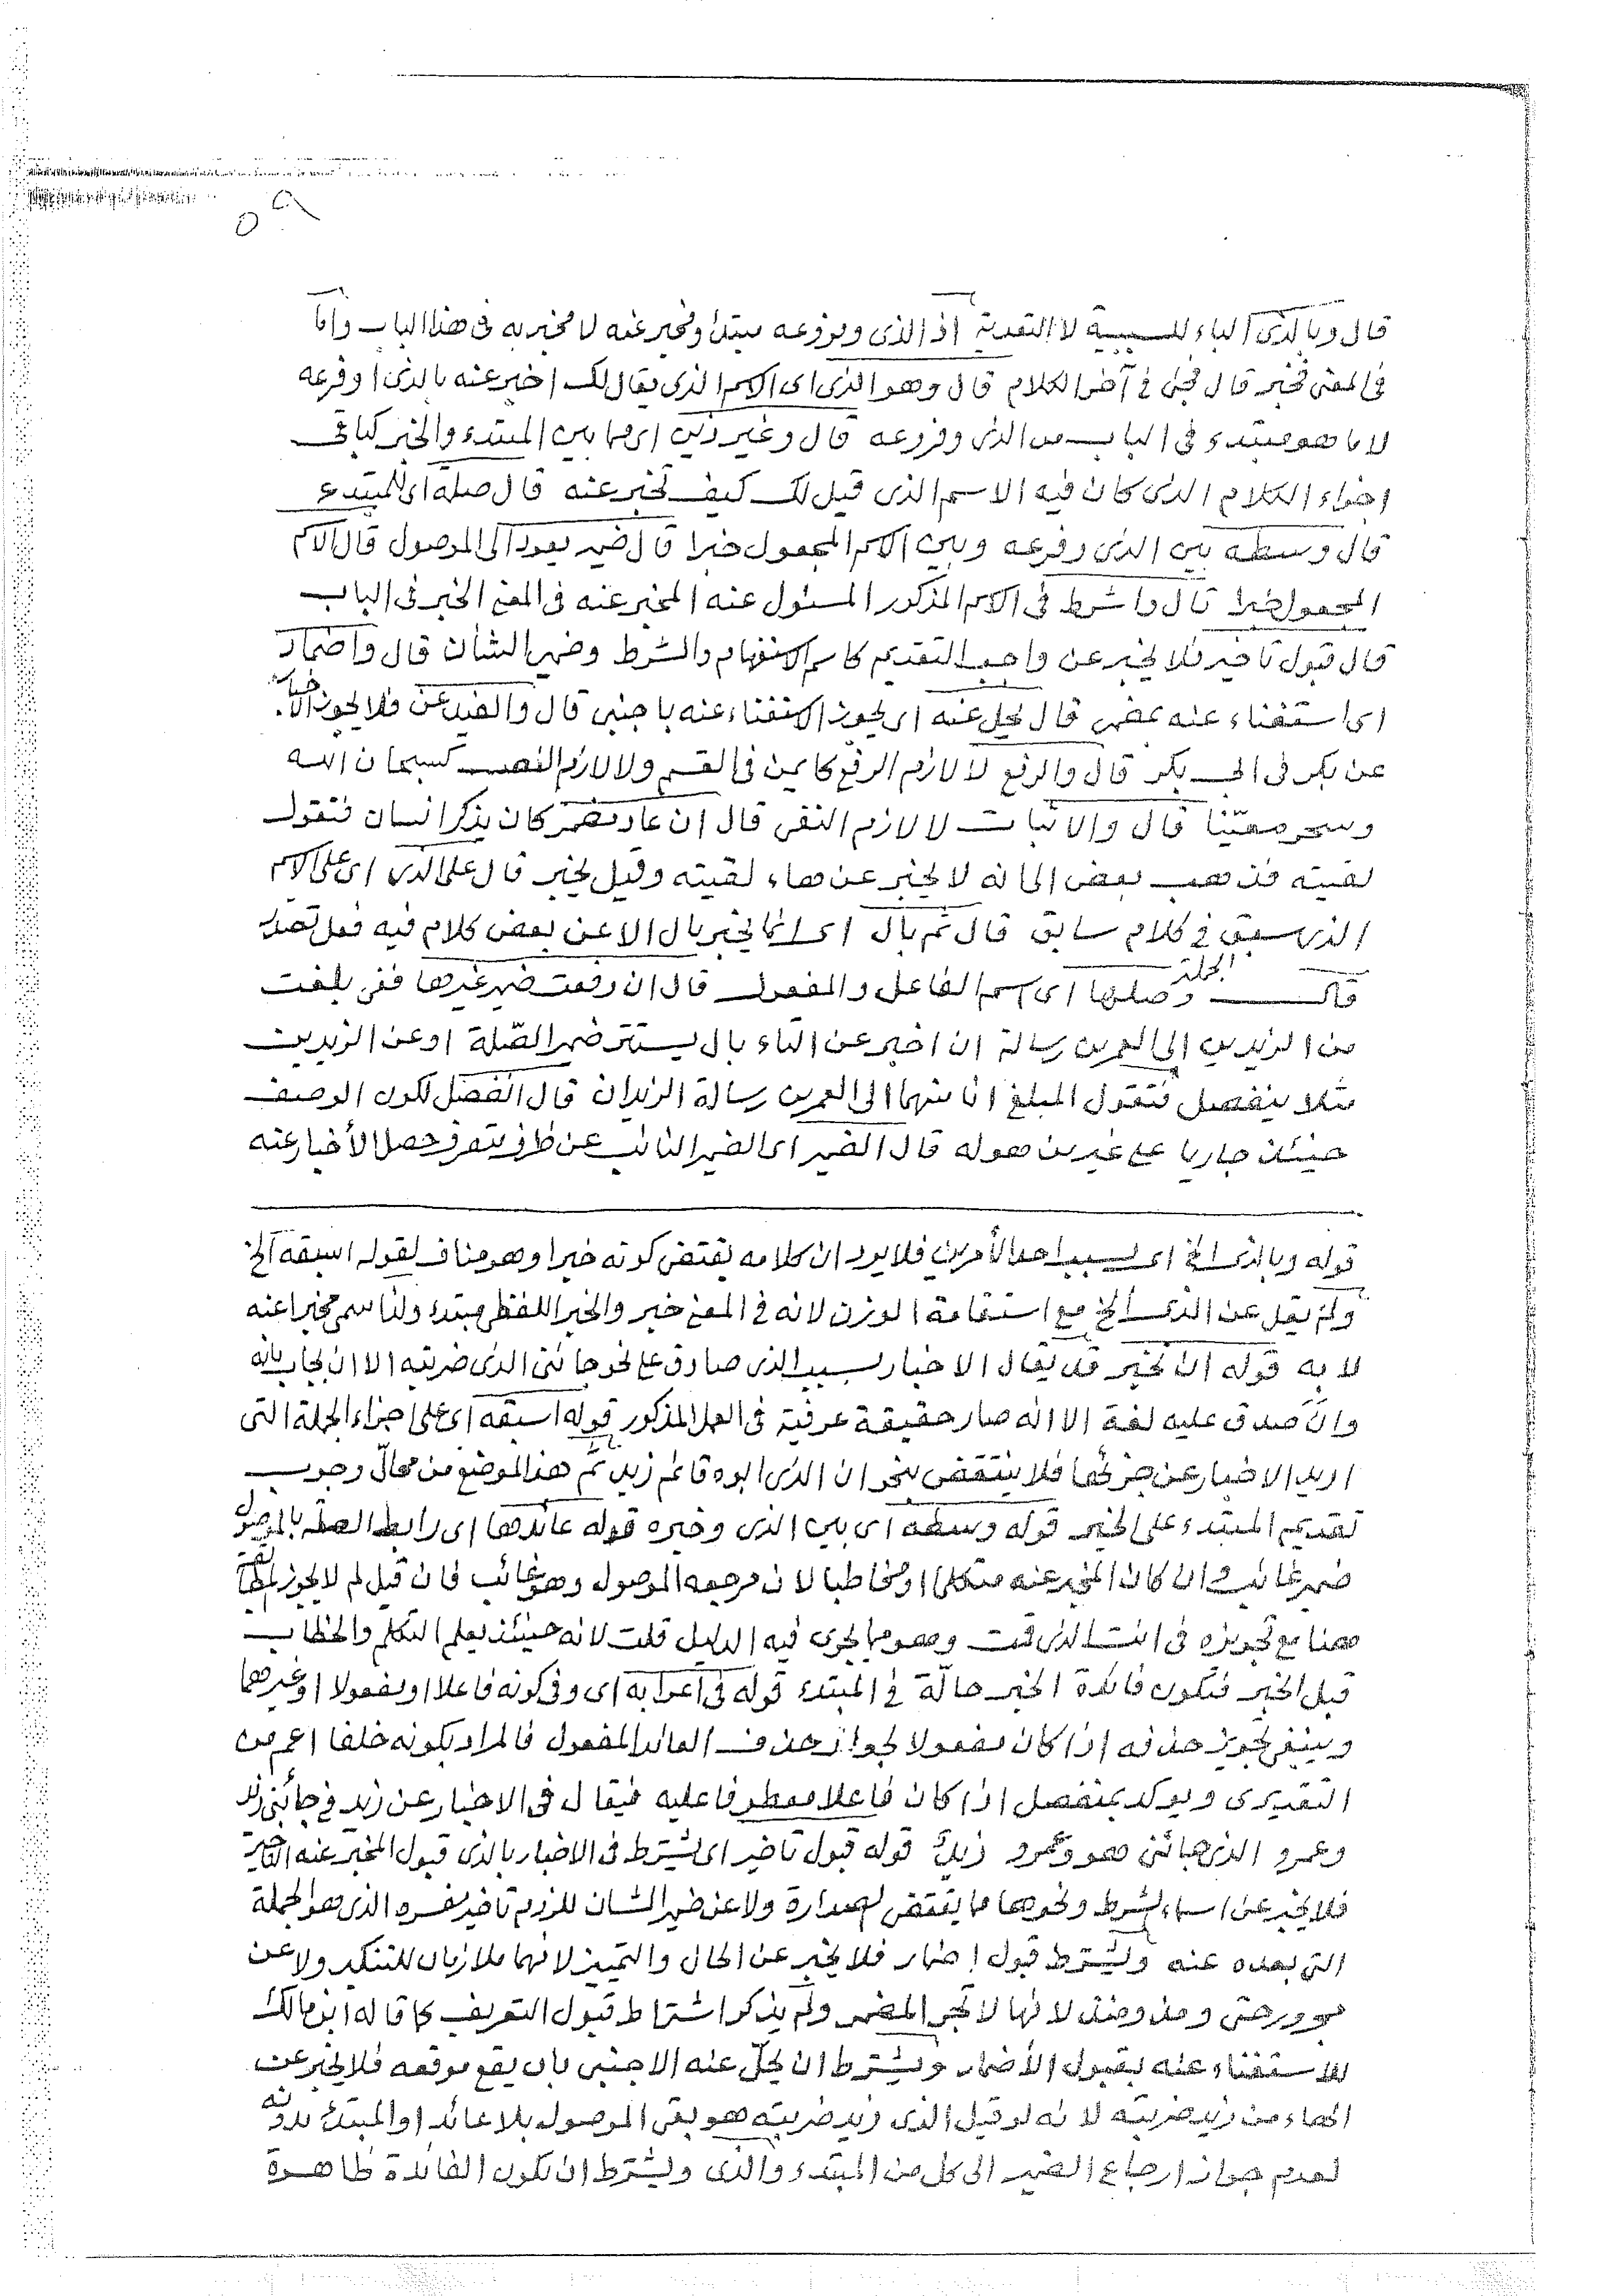 قال وبالذى الباء للسببية لا التعدية اذ الذى وفروعه مبتدأ ومخبر عنه لا مخبر به فى هذا الباب واما
فى المعنى فخبر قال فجئ فى آخر الكلام قال وهو الذى اى الاسم الذى يقال لك اخبر عنه بالذى او فرعه
لا ما هو مبتدء فى الباب من الذى وفروعه قال وغير ذين اى مما بين المبتدء والخبر كباقى
اجزاء الكلام الذى كان فيه الاسم الذى قيل لك كيف تخبر عنه قال صلة اى للمبتدء
قال وسطه بين الذى وفرعه وبين الاسم المجعول خبرا قال ضمير يعود الى الموصول قال الاسم
المجعول خبرا قال واشرط فى الاسم المذكور المسئول عنه المخبر عنه فى المعنى الخبر فى الباب
قال قبول تأخير فلا يخبر عن واجب التقديم كاسم الاستفهام والشرط وضمير الشأن قال واضمار
اى استغناء عنه بمضمر قال يحل عنه اى يجوز الاستغناء عنه باجنبى قال والغيد عن فلا يجوز الاخبار
عن بكر فى ابى بكر قال والرفع لا لازم الرفع كايمن فى القسم ولا لازم النصب كسبحان الله
وسحر معيّنا قال والاثبات لا لازم النفى قال ان عاد مضمر كان يذكر انسان فتقول
لقيته فذهب بعض الى انه لا يخبر عن هاء لقيته وقيل يخبر قال على الذى اى على الاسم
الذى سبق فى كلام سابق قال ثم بال اى انما يخبر بال الا عن بعض كلام فيه فعل تصدر
الجملة
قال وصلها اى اسم الفاعل والمفعول قال ان رفعت ضمير غيرها ففى بلغت
من الزيدين الى العمرين رسالة ان اخبر عن التاء بال يستتر ضمير الصّلة او عن الزيدين
مثلا ينفصل فتقول المبلغ انا منهما الى العمرين رسالة الزيدان قال انفصل لكون الوصف
حينئذ جاريا على غير من هو له قال الضمير اى الضمير النائب عن ظرف يتصرف حصل الأخبار عنه
قوله وبالذى الخ اى بسبب احد الأمرين فلا يرد ان كلامه يقتضى كونه خبرا وهو مناف لقوله اسبقه الخ
ولم يقل عن الذى الخ مع استقامة الوزن لانه فى المعنى خبر والخبر اللفظى مبتدء ولذا سمى مخبرا عنه
لا به قوله ان تخبر قد يقال الاخبار بسبب الذى صادق على نحو جائنى الذى ضربته الا ان يجاب بانه
وان صدق عليه لغة الا انه صار حقيقة عرفية فى العمل المذكور قوله اسبقه اى على اجزاء الجملة التى
اريد الاخبار عن جزئها فلا ينتقض بنحو ان الذى ابوه قائم زيد ثم هذا الموضع من محالّ وجوب
تقديم المبتدء على الخبر قوله وسطه اى بين الذى وخبره قوله عائدها اى رابط الصلة بالموصول
ضمير غائب وان كان المخبر عنه متكلما او مخاطبا لان مرجعه الموصول وهو غائب فان قيل لم لا يجوز المطابقة
ههنا مع تجويزه فى انت الذى قمت وهو مما يجرى فيه الدليل قلت لانه حينئذ يعلم التكلم والخطاب
قبل الخبر فتكون فائدة الخبر حالّة فى المبتدء قوله فى اعرابه اى وفى كونه فاعلا او مفعولا او غيرهما
وينبغى تجويز حذفه اذا كان مفعولا لجواز حذف العائد المفعول فالمراد بكونه خلفا اعم من
التقديرى ويوكد بمنفصل اذا كان فاعلا معطوفا عليه فيقال فى الاخبار عن زيد فى جائنى زيد
وعمرو الذى جائنى هو وعمرو زيد قوله قبول تاخير اى يشترط فى الاخبار بالذى قبول المخبر عنه التأخير
فلا يخبر عن اسماء الشرط ونحوها مما يقتضى الصدارة ولا عن ضمير الشان للزوم تأخير مفسره الذى هو الجملة
التى بعده عنه ويشترط قبول اضمار فلا يخبر عن الحال والتمييز لانهما ملازمان للتنكير ولا عن
مجرور حتى ومذ ومنذ لانها لا تجر المضمر ولم يذكر اشتراط قبول التعريف كما قاله ابن مالك
للاستغناء عنه بقبول الأضمار ويشترط ان يحلّ عنه الاجنبى بان يقع موقعه فلا يخبر عن
الهاء من زيد ضربته لانه لو قيل الذى زيد ضربته هو بقى الموصول بلا عائد او المبتدأ بدونه
لعدم جواز ارجاع الضمير الى كل من المبتدء والذى ويشترط ان تكون الفائدة ظاهرة